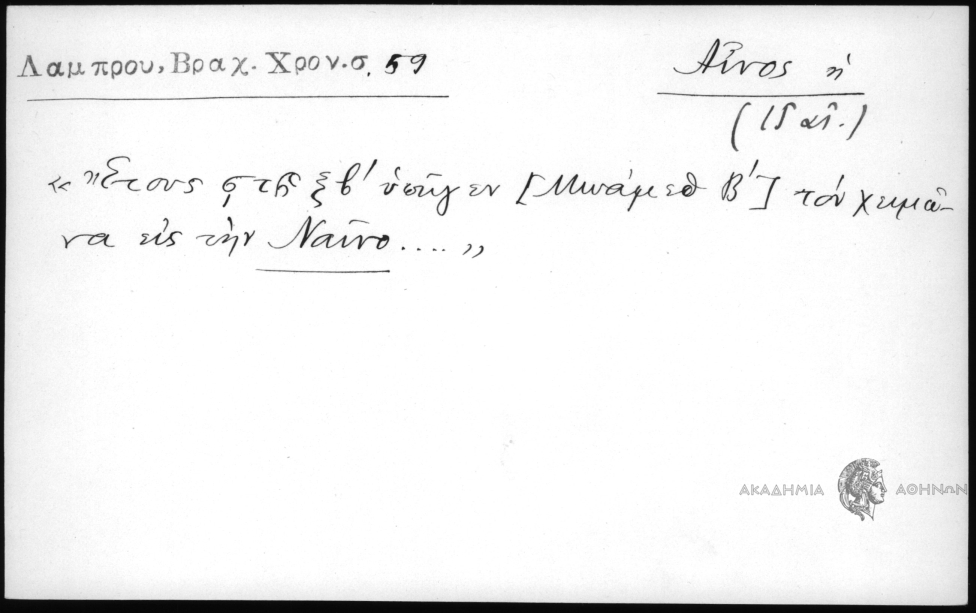 Λαμπρου, Βραχ. Χρον. σ. 59
Αἶνος ἡ
(15 αἰ.)
« Ἔτους ϛ ϡ ξβ' ὑπῆγεν [Μωάμεθ Β'] τόν χειμῶ-
να εἰς τὴν Ναῖνο .... »
ΑΚΑΔΗΜΙΑ ΑΘΗΝΩΝ